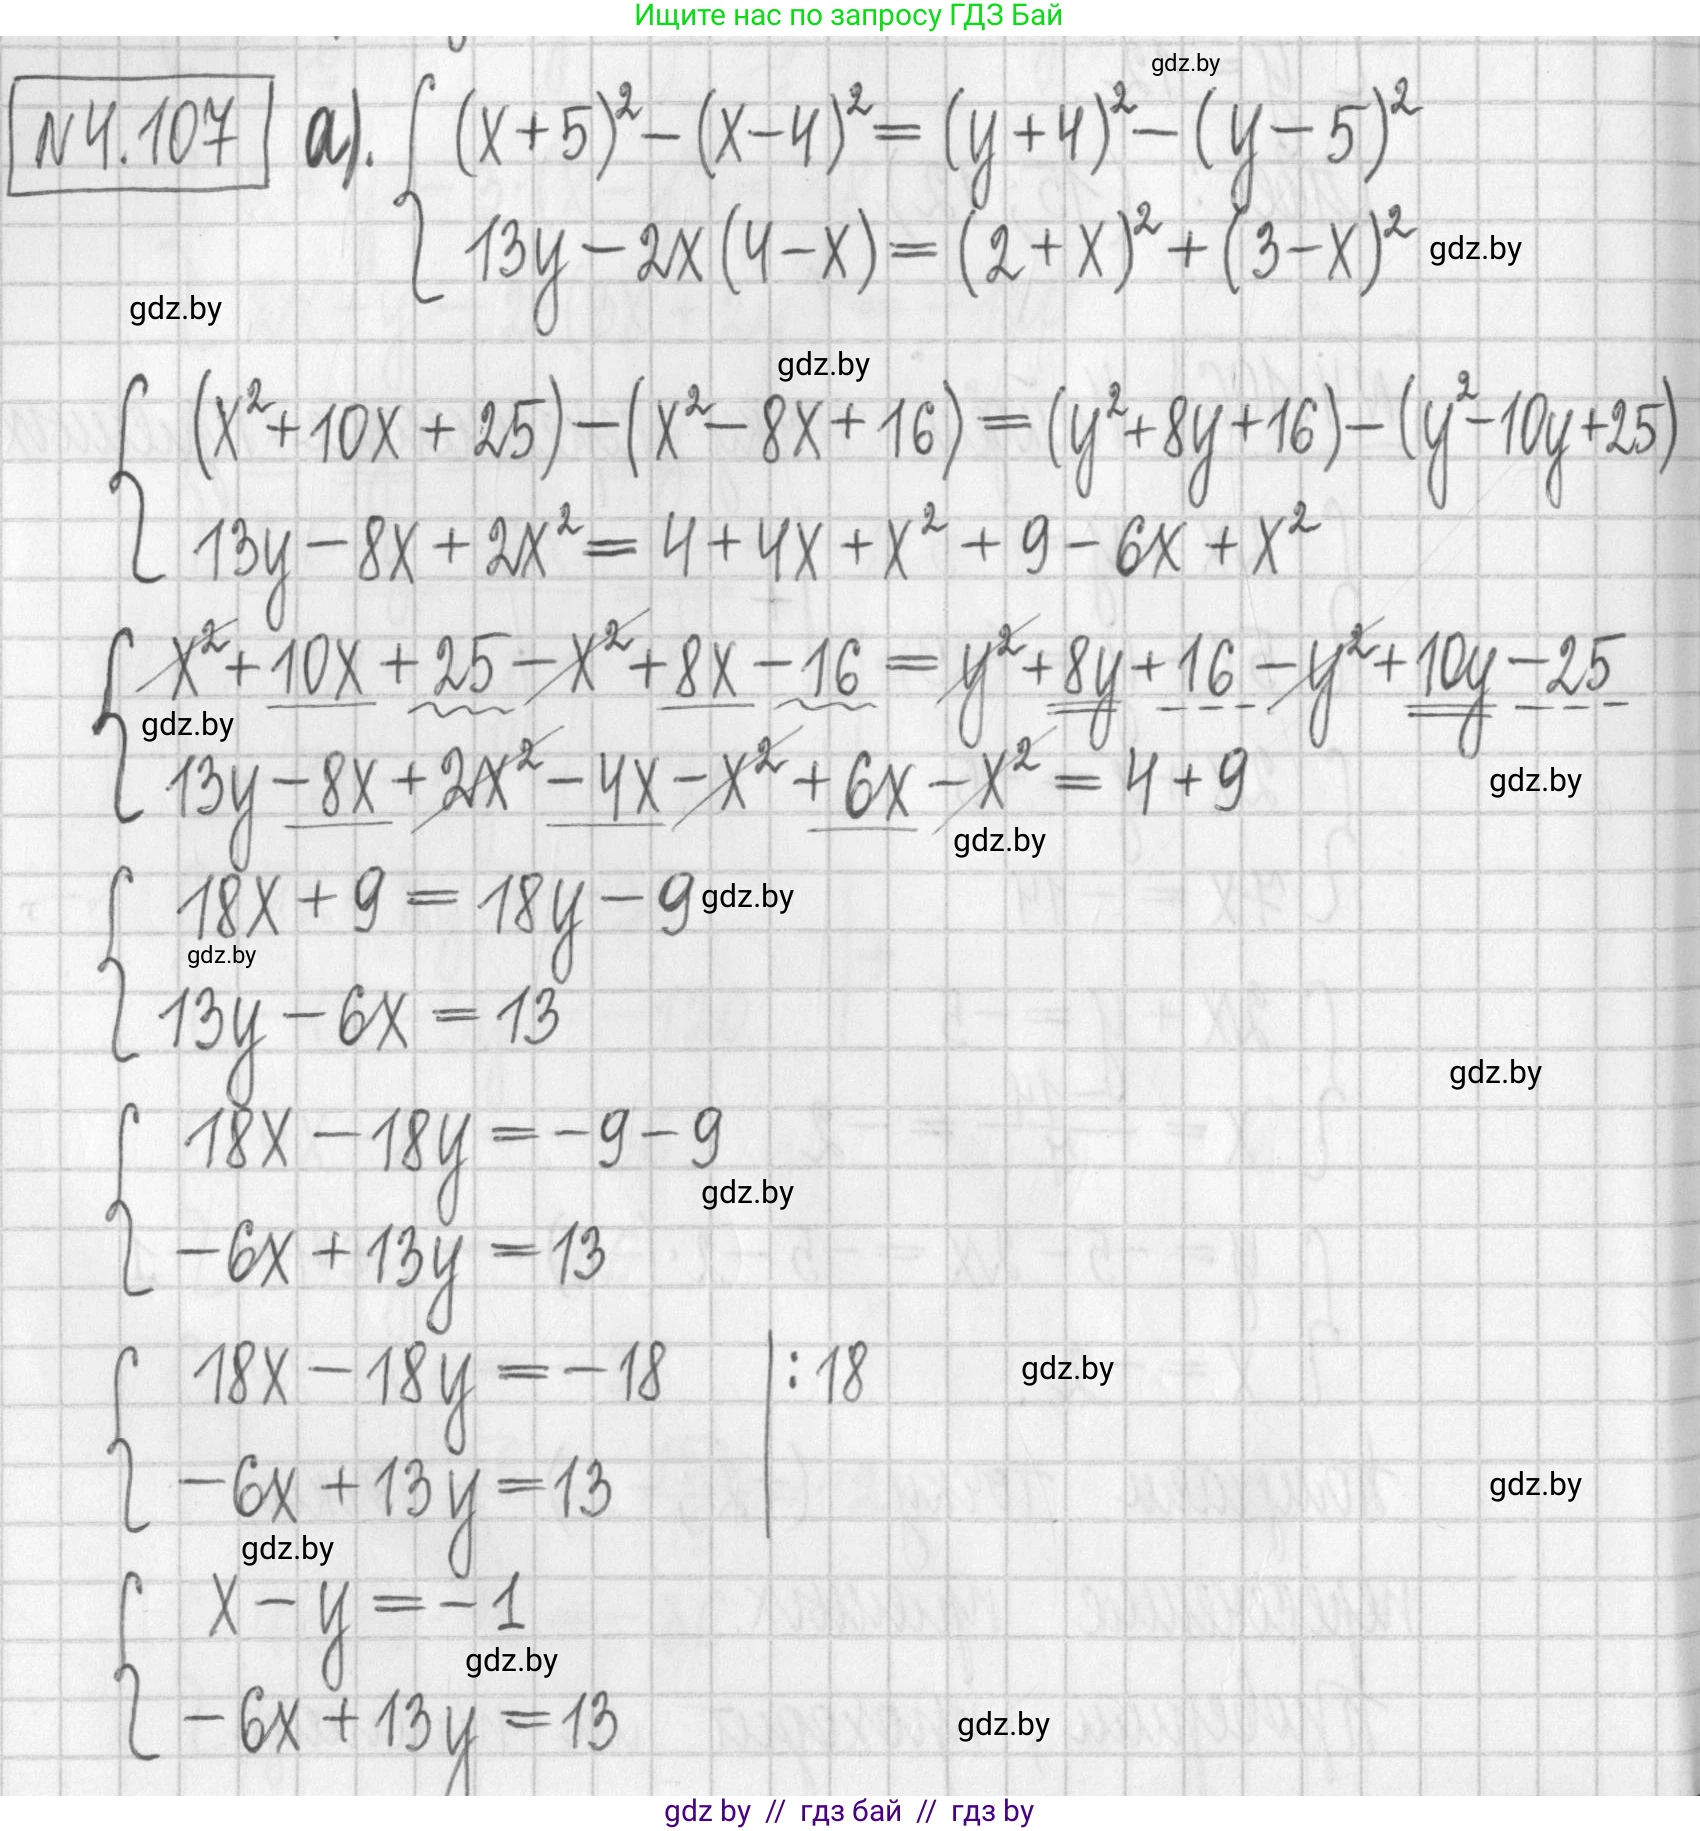 Ищите нас по запросу ГДЗ Бай
gdz.by
№4.107 а). { (x+5)² − (x−4)² = (y+4)² − (y−5)²
13y − 2x(4−x) = (2+x)² + (3−x)² gdz.by
gdz.by
gdz.by
{ (x²+10x+25) − (x²−8x+16) = (y²+8y+16) − (y²−10y+25)
13y − 8x + 2x² = 4 + 4x + x² + 9 − 6x + x²
{ x² + 10x + 25 − x² + 8x − 16 = y² + 8y + 16 − y² + 10y − 25
gdz.by
13y − 8x + 2x² − 4x − x² + 6x − x² = 4 + 9 gdz.by
gdz.by
{ 18x + 9 = 18y − 9 gdz.by
gdz.by
13y − 6x = 13
gdz.by
{ 18x − 18y = −9 − 9
gdz.by
−6x + 13y = 13
{ 18x − 18y = −18 | :18 gdz.by
−6x + 13y = 13 gdz.by
gdz.by
{ x − y = −1
gdz.by
−6x + 13y = 13 gdz.by
gdz by // гдз бай // гдз by